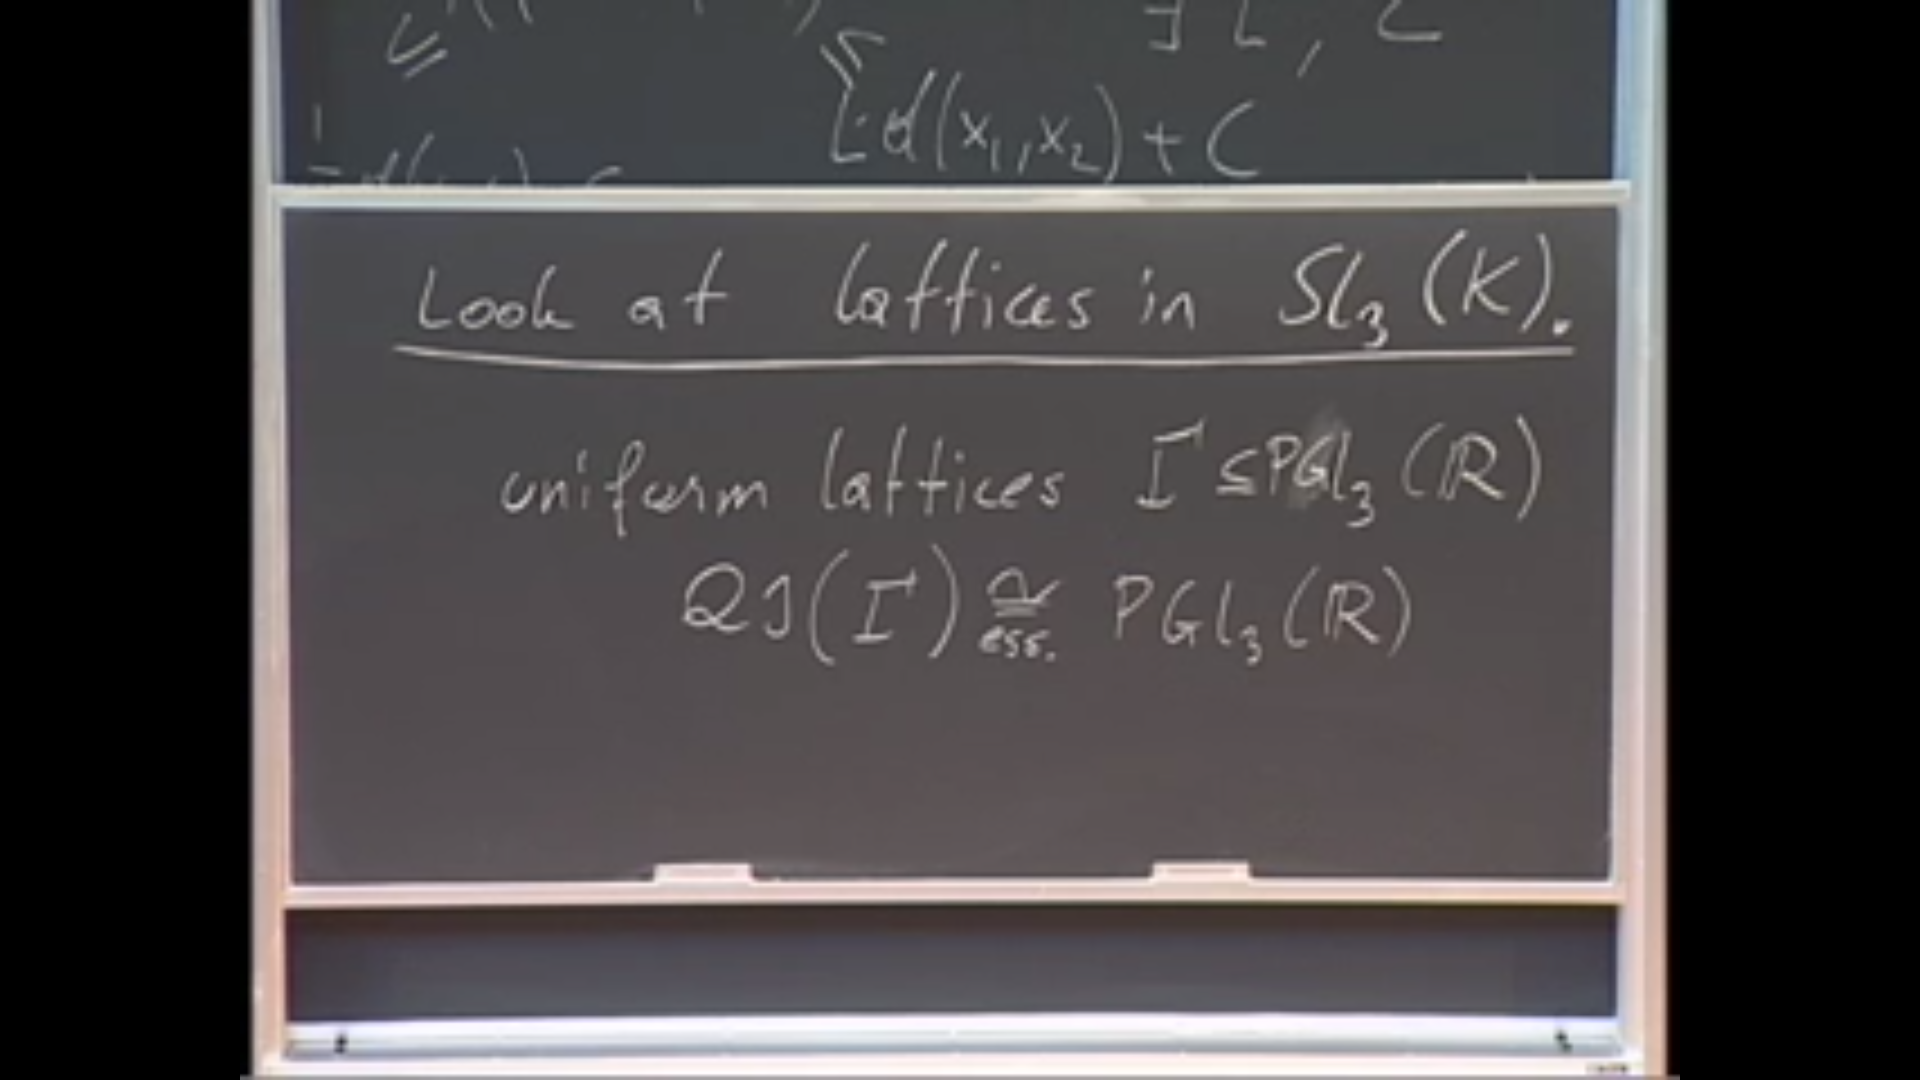 ≤ ∃ L, C
≤
L·d(x₁,x₂) + C
Look at lattices in Sl₃(K).
uniform lattices Γ ≤ PGl₃(ℝ)
QI(Γ) ≅ PGl₃(ℝ)
ess.